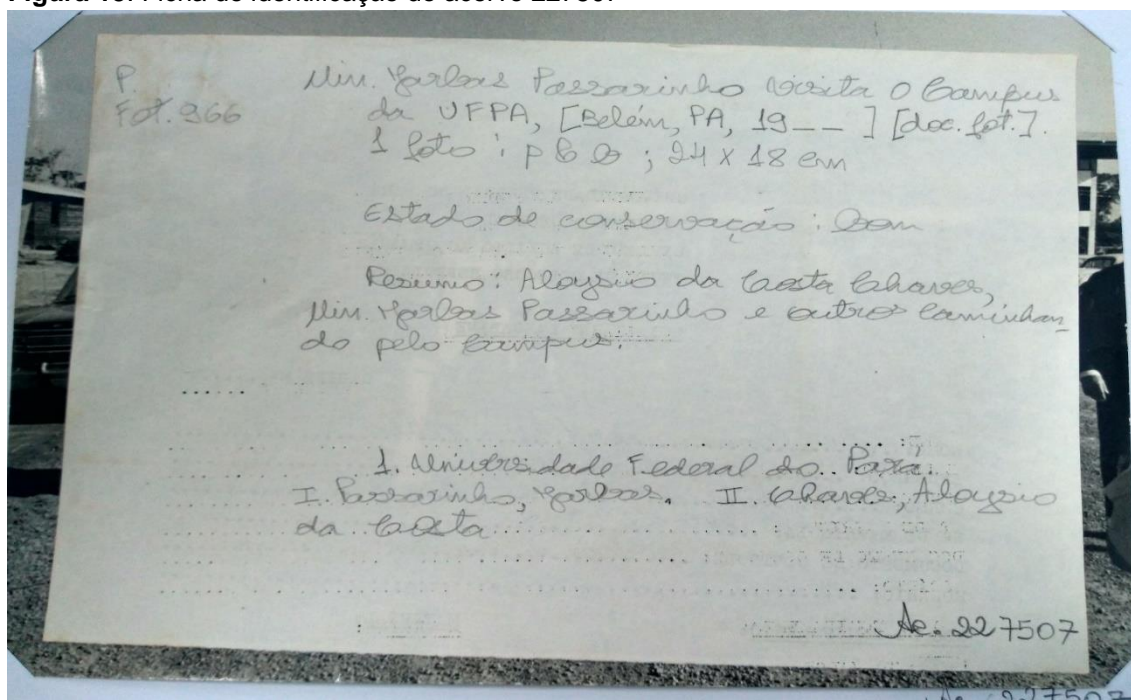 Figura 15. Ficha de identificação do acervo 227507
P.
Fot. 966
Min. Jarbas Passarinho visita o Campus
da UFPA, [Belém, PA, 19__] [doc. fot.].
1 foto : p & b ; 24 x 18 cm
Estado de conservação : Bom
Resumo : Aloysio da Costa Chaves,
Min. Jarbas Passarinho e outros caminhan
do pelo Campus.
1. Universidade Federal do Pará.
I. Passarinho, Jarbas. II. Chaves, Aloysio
da Costa
Ac. 227507
Ac 227507